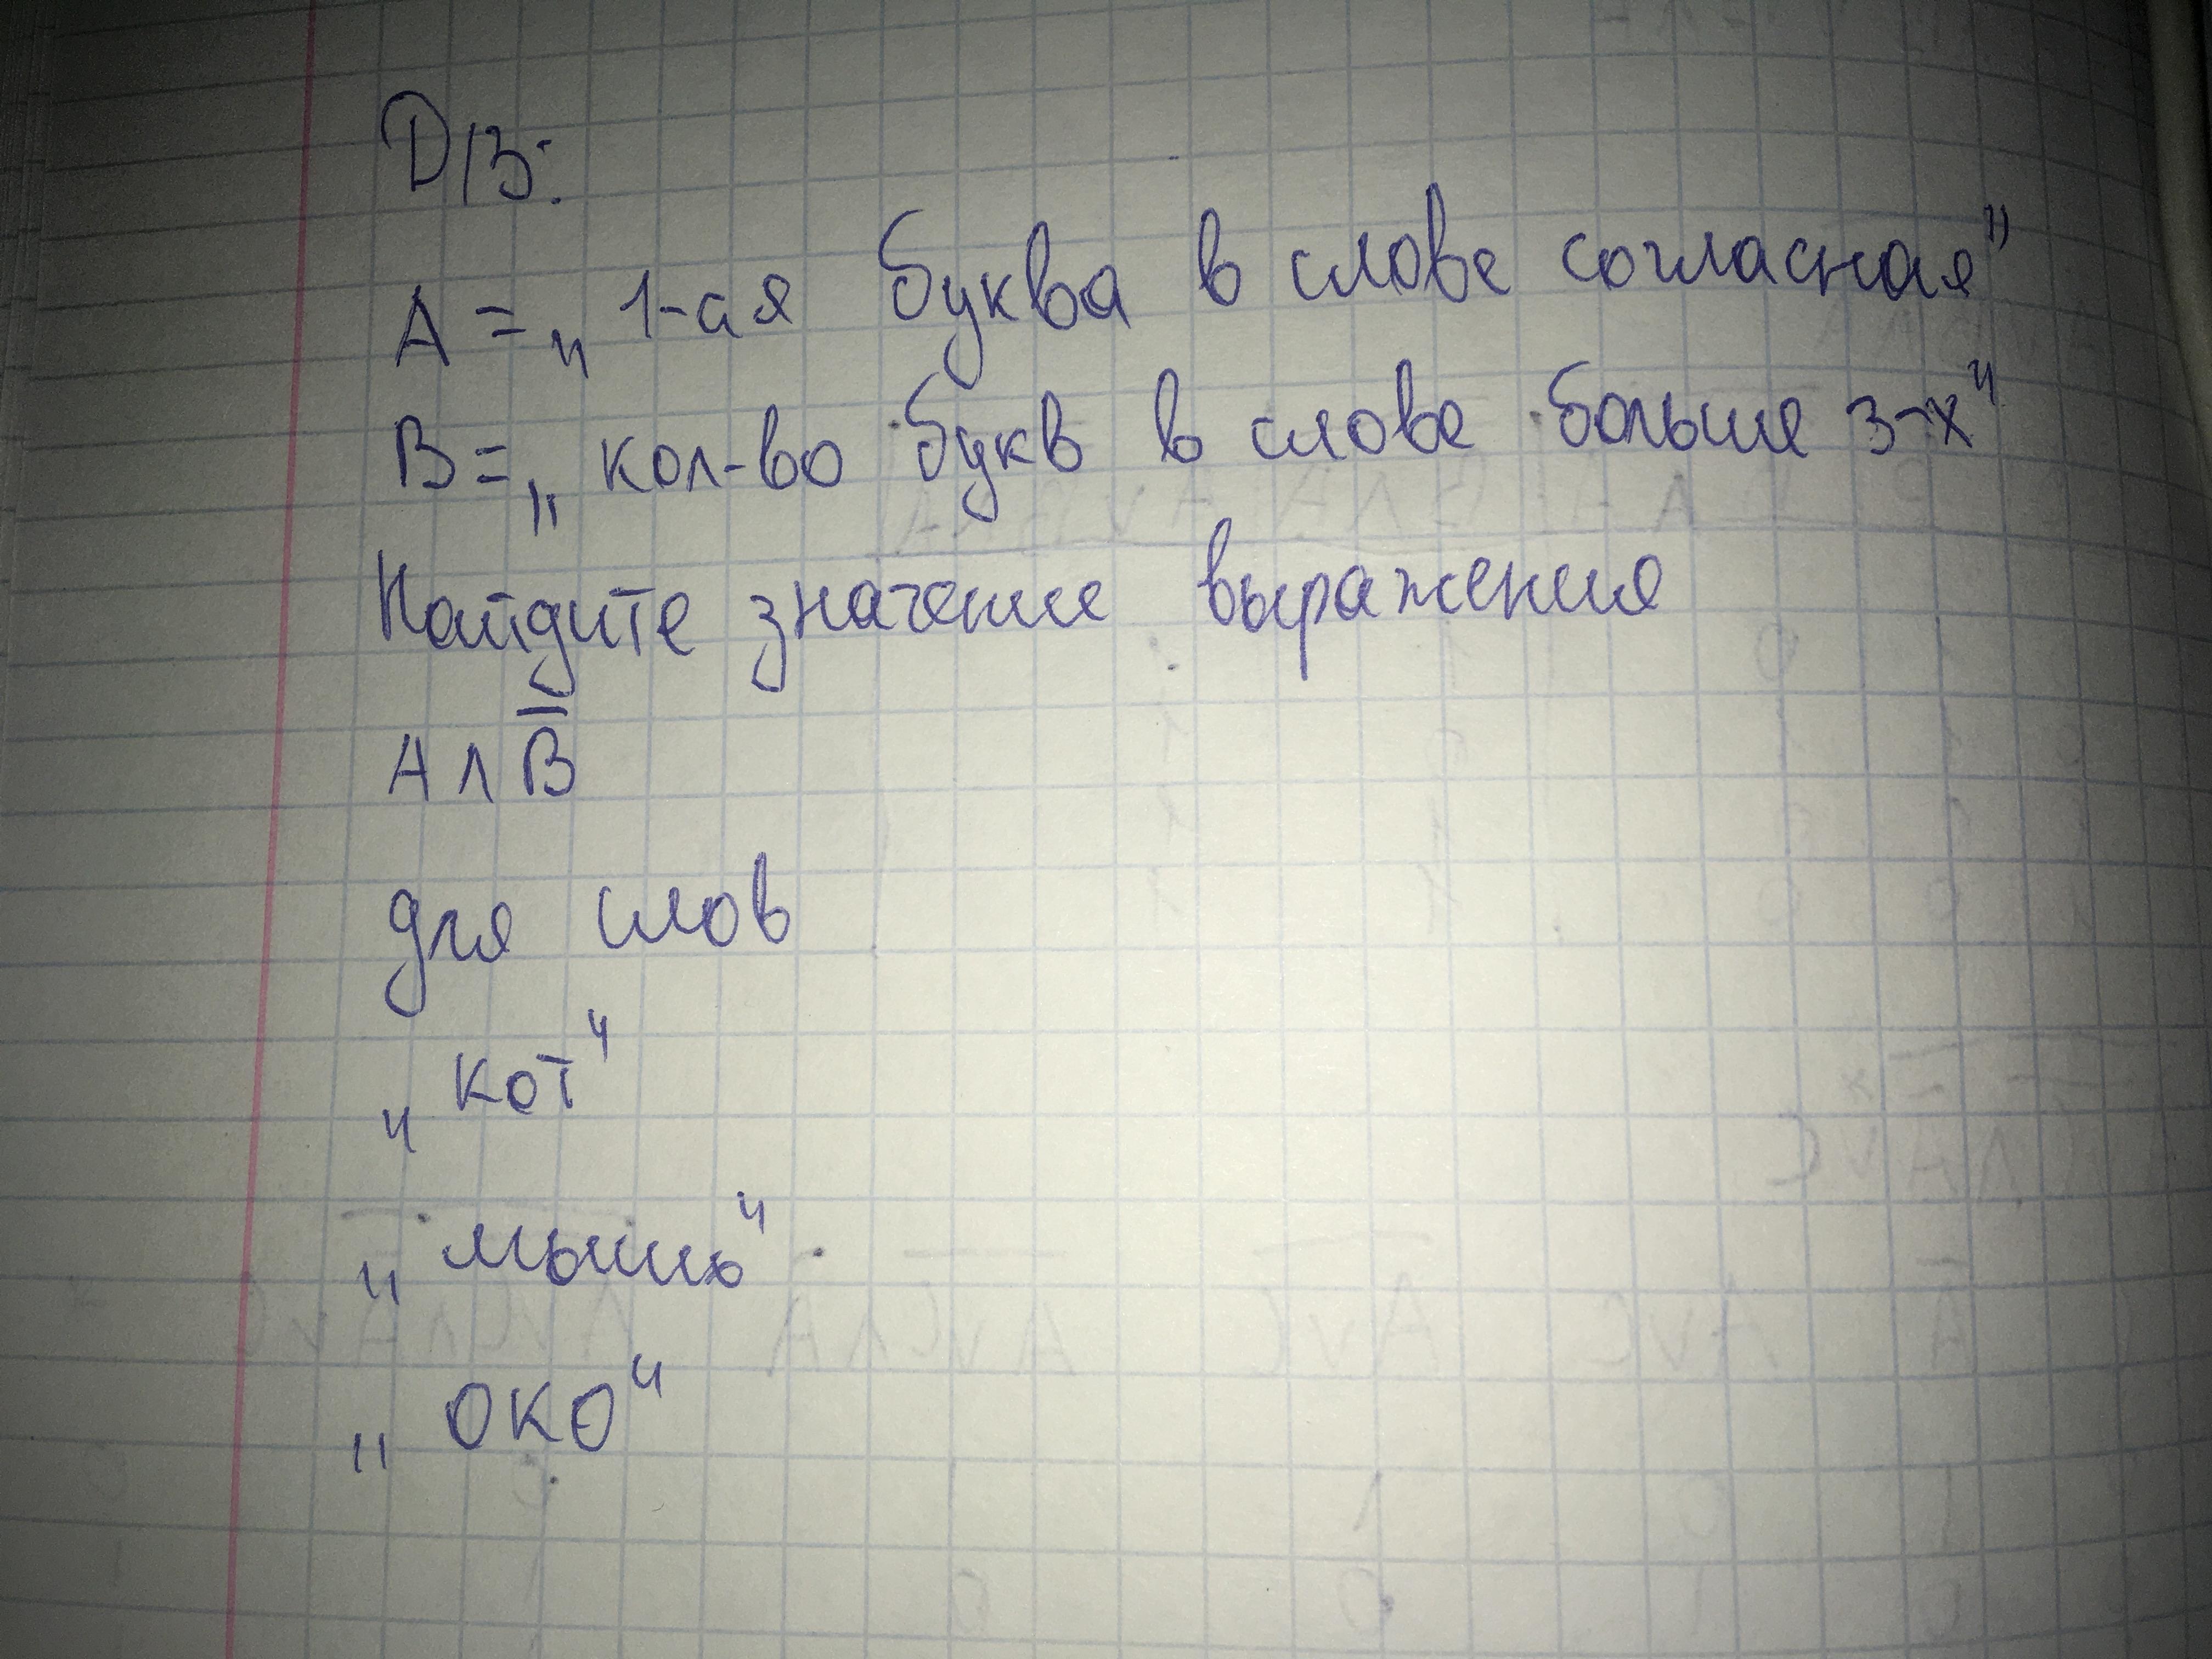 D/З:
A = „ 1-ая буква в слове согласная"
B = „ кол-во букв в слове больше 3-х"
Найдите значение выражения
A ∧ B̅
для слов
„ кот"
„ мышь"
„ око"